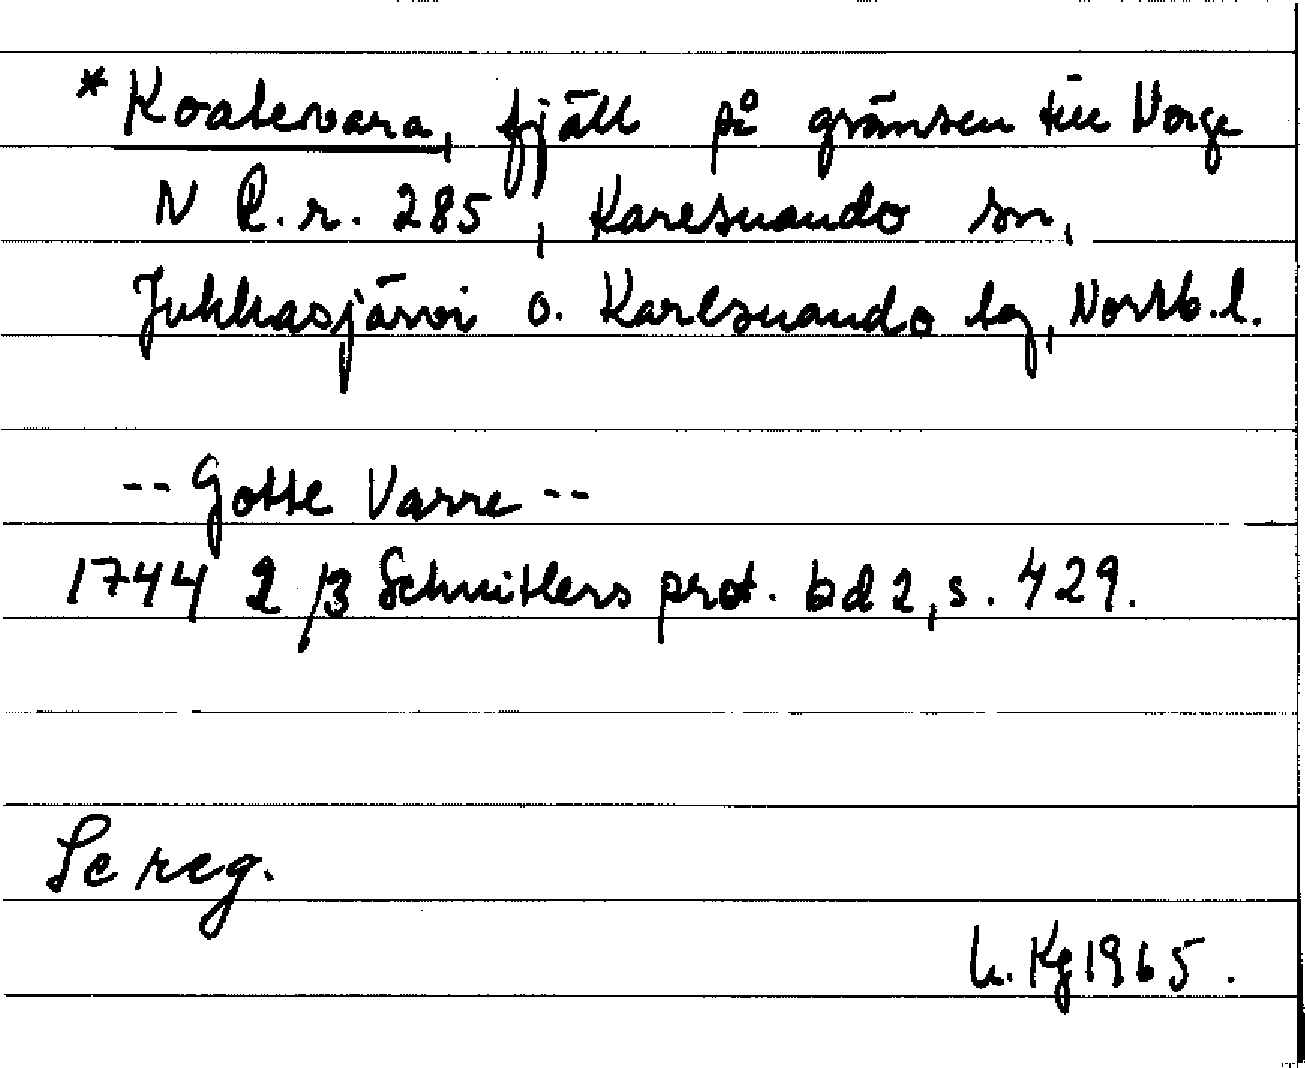 *Koatevara, fjäll på gränsen till Norge
N R.r. 285, Karesuando sn,
Jukkasjärvi o. Karesuando lg, Norrb.l.
-- Gotte Varre --
1744 2/3 Schnitlers prot. bd 2, s. 429.
Se reg.
h. Kg 1965.